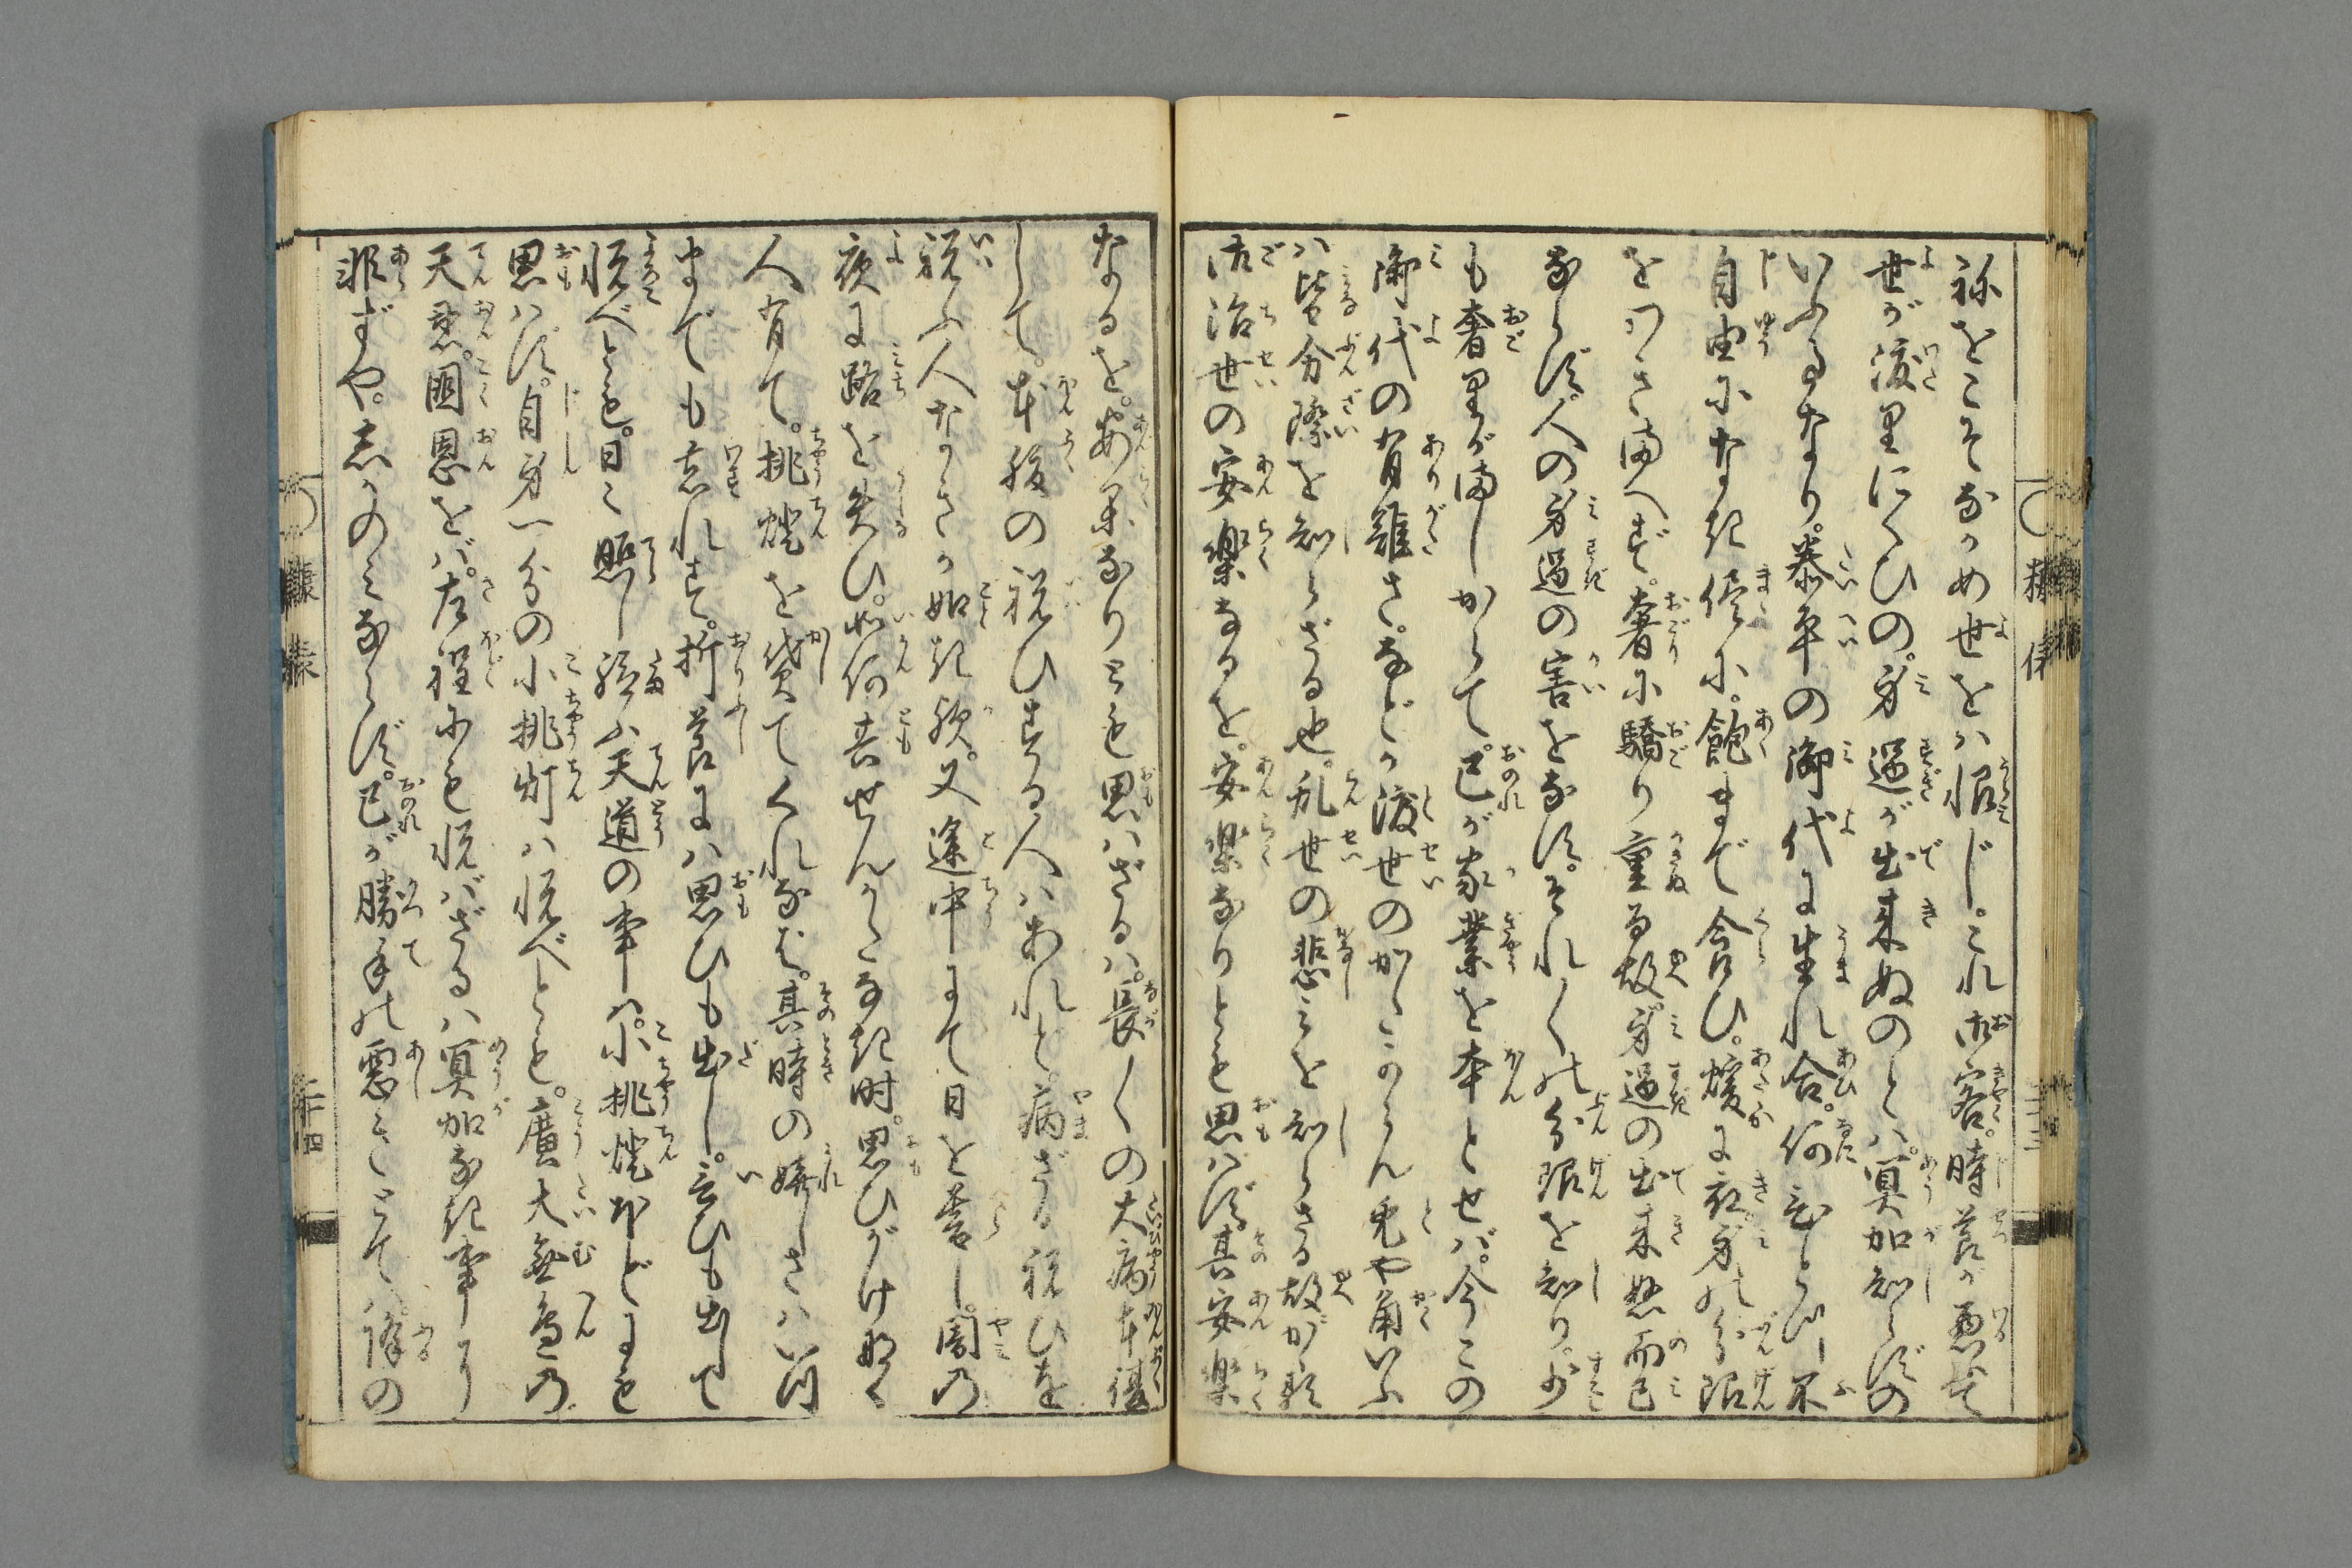 祢をこそながめ世をバ恨じ。これ御客。時節が悪て
世が渡里にくひの。身過が出来ぬのとハ。冥加知らずの
いふ事なり。泰平の御代に生れ合。何ひとつ不
自由になき儘に。飽まで食ひ。煖に衣。身の分限
をわきまへず。奢に驕り重る故。身過の出来悪而已
ならず。人の身過の害をなす。それ〳〵の分限を知り。少
も奢里がましからで。己が家業を本とせバ。今この
御代の有難さ。などか渡世のかたからん。兎や角いふ
ハ皆分際を知らざる也。乱世の悲しみを知らざる故ぞかし
御治世の安楽なるを。安楽なりとも思ハず。其安楽
なるを。安楽なりとも思ハざるハ。長〳〵の大病本復
して。本復の祝ひする人ハあれど。病ざる祝ひを
祝ふ人なきが如き歟。又途中にて日を暮し。闇の
夜に路を失ひ。如何共せんかたなき時。思ひがけなく
人有て。挑燈を貸てくれなば。其時の嬉しさハいつ
までも忘れず。折節にハ思ひも出し。言ひも出して
悦べども。日々照し給ふ天道の事ハ。小挑燈ほどにも
思ハず。自身一分の小挑灯ハ悦べども。廣大無邊の
天恩。国恩をバ。左程にも悦バざるハ冥加なき事に
非ずや。しかのみならず。己が勝手の悪きとてハ。降の
二十四